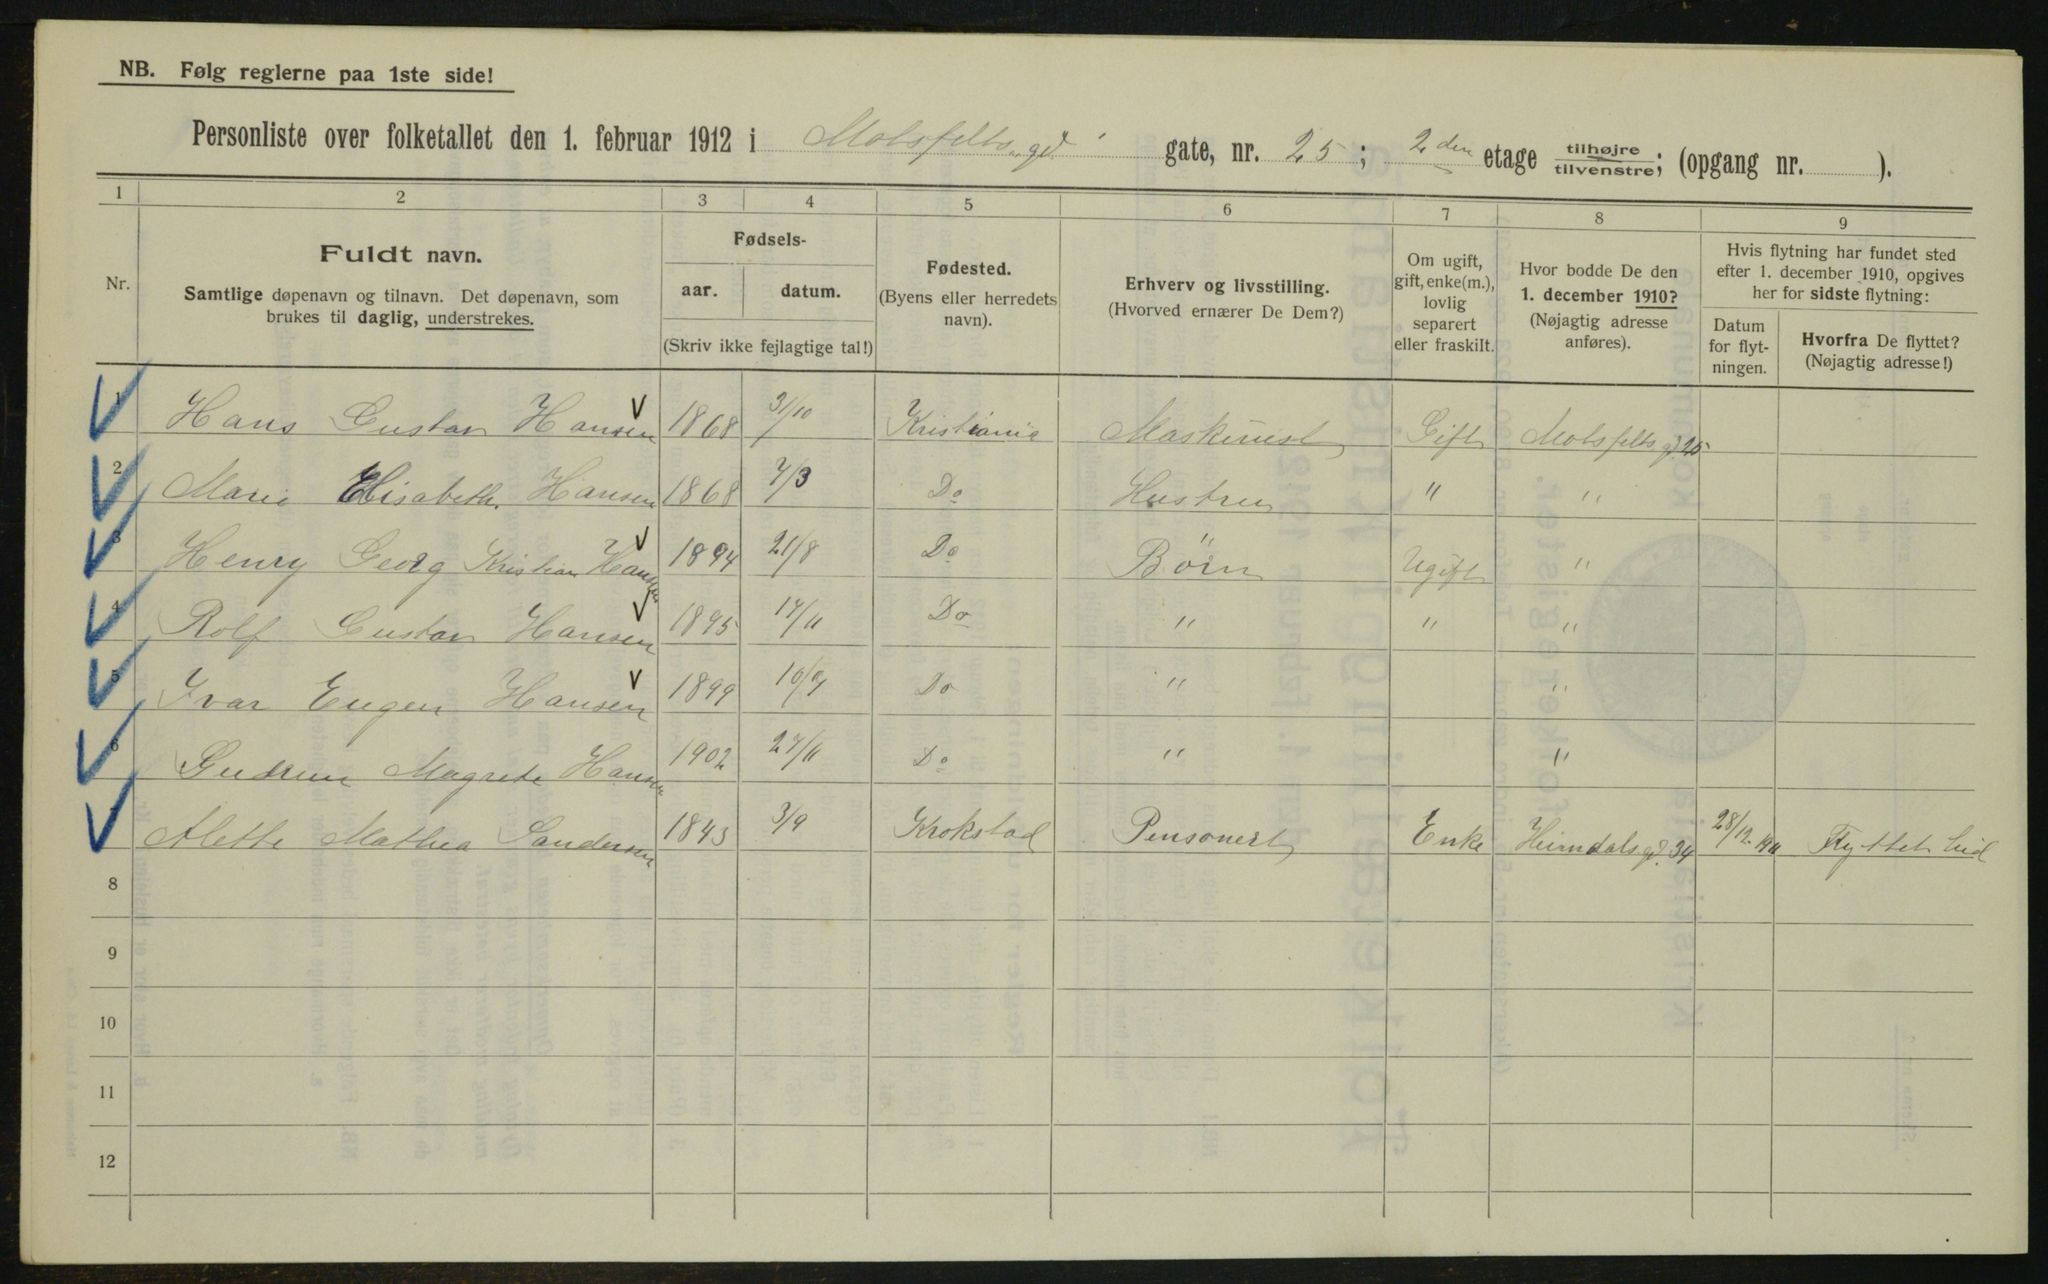 NB. Følg reglerne paa 1ste side!
Personliste over folketallet den 1. februar 1912 i Motsfelts gd. gate, nr. 25; 2den etage tilhøjre/tilvenstre; (opgang nr. ).
1 2 3 4 5 6 7 8 9
Nr.
Fuldt navn.
Samtlige døpenavn og tilnavn. Det døpenavn, som
brukes til daglig, understrekes.
Fødsels-
aar. datum.
(Skriv ikke fejlagtige tal!)
Fødested.
(Byens eller herredets
navn).
Erhverv og livsstilling.
(Hvorved ernærer De Dem?)
Om ugift,
gift, enke(m.),
lovlig
separert
eller fraskilt.
Hvor bodde De den
1. december 1910?
(Nøjagtig adresse
anføres).
Hvis flytning har fundet sted
efter 1. december 1910, opgives
her for sidste flytning:
Datum
for flyt-
ningen.
Hvorfra De flyttet?
(Nøjagtig adresse!)
1 Hans Gustav Hansen 1868 31/10 Kristiania Maskinist Gift Motsfelts gd. 25
2 Marie Elisabeth. Hansen 1868 7/3 Do Hustru " "
3 Henry Georg Kristian Hansen 1894 21/8 Do Børn Ugift "
4 Rolf Gustav Hansen 1895 17/11 Do " " "
5 Ivar Eugen Hansen 1899 Do " "
6 Gudrun Magrete Hansen 1902 27/11 Do " "
7 Alette Mathea Sandersen 1843 3/9 Krokstad Pensonert Enke Heimdals gd. 34 28/12 1911 Flyttet hid
8
9
10
11
12